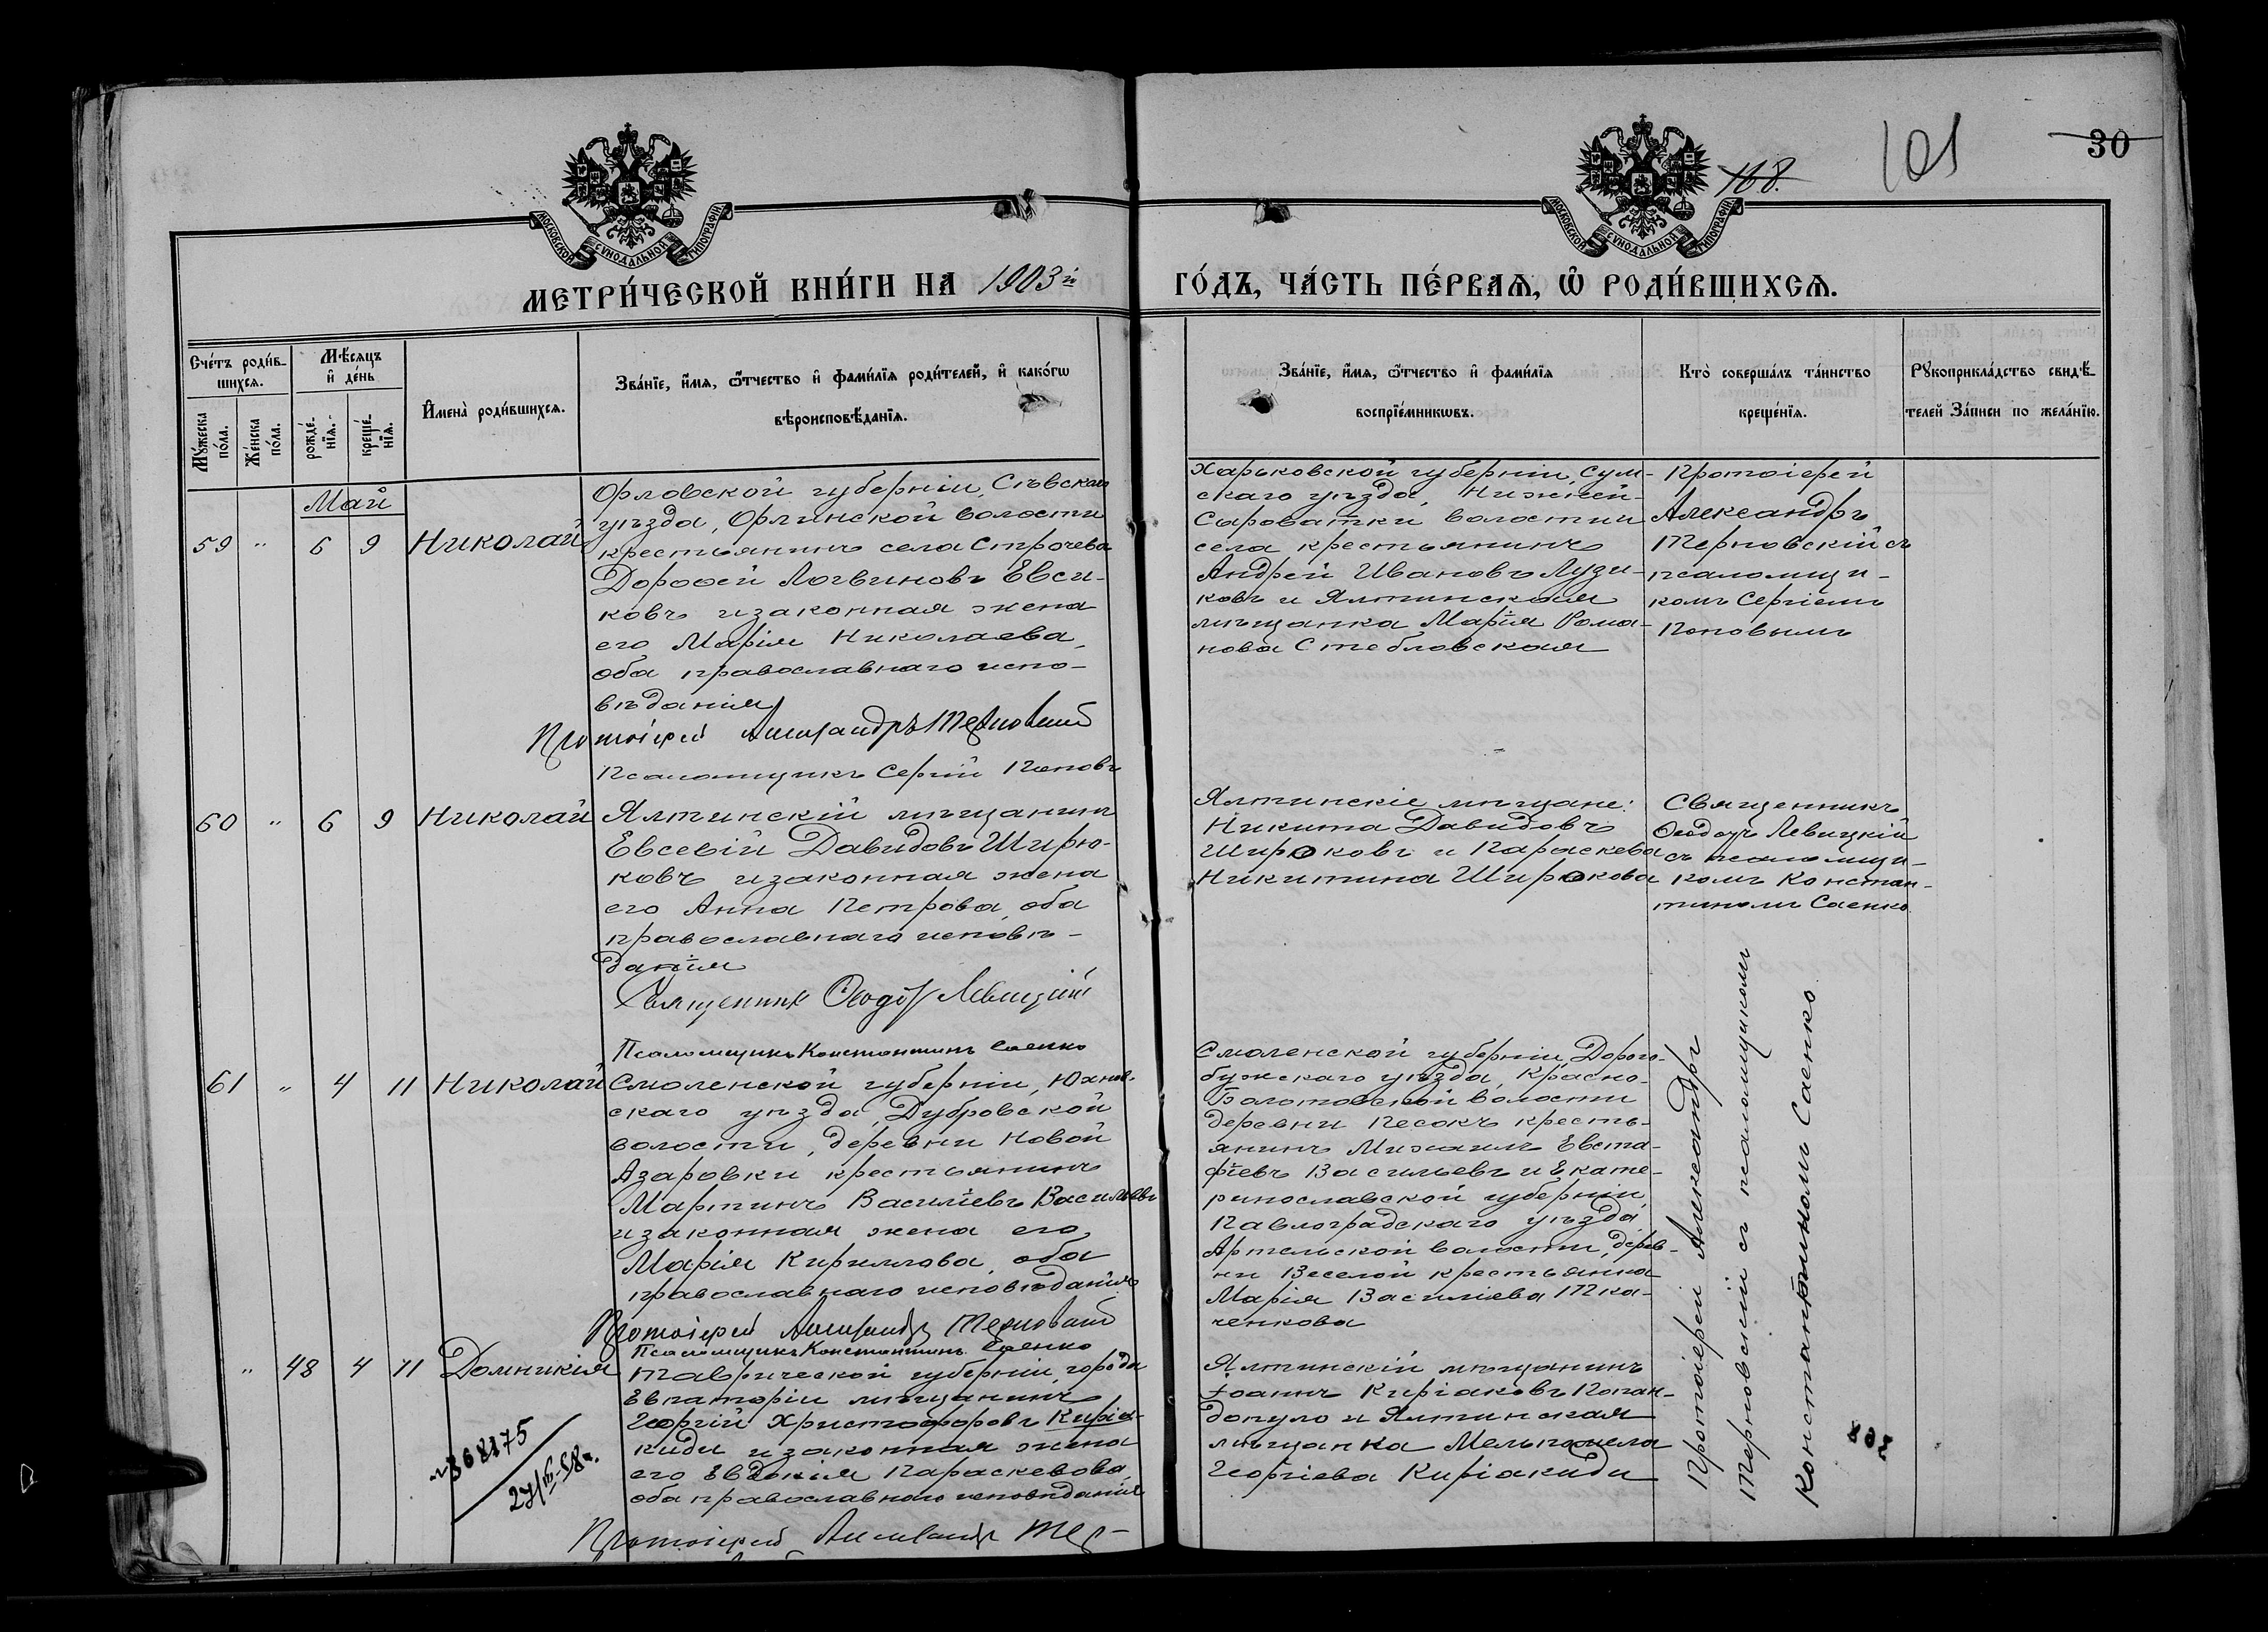 168.
101
30
МОСКОВСКОЙ СѴНОДАЛЬНОЙ ТИПОГРАФІИ
МОСКОВСКОЙ СѴНОДАЛЬНОЙ ТИПОГРАФІИ
МЕТРИ́ЧЕСКОЙ КНИ́ГИ НА 1903й
ГО́ДЪ, ЧА́СТЬ ПЕ́РВАѦ, Ѽ РОДИ́ВШИХСѦ.
Сче́тъ роди́в-
шихсѧ.
Мꙋ́жеска
по́ла.
Же́нска
по́ла.
Мѣ́сѧцъ
и҆ де́нь
рожде́-
нїѧ.
креще́-
нїѧ.
И҆мена̀ роди́вшихсѧ.
Зва́нїе, и҆́мѧ, ѻ҆́тчество и҆ фами́лїѧ роди́телей, и҆ како́гѡ
вѣроисповѣ́данїѧ.
Зва́нїе, и҆́мѧ, ѻ҆́тчество и҆ фами́лїѧ
воспрїе́мникѡвъ.
Кто̀ соверша́лъ та́инство
креще́нїѧ.
Рꙋкоприкла́дство свидѣ́-
телей За́писи по жела́нїю.
Май
59 " 6 9 Николай
Орловской губерніи, Сѣвскаго
уѣзда, Орлинской волости
крестьянинъ села Строчева
Дороѳей Логвиновъ Евси-
ковъ и законная жена
его Марія Николаева,
оба православнаго испо-
вѣданія
Протоіерей Александръ Терновскій
Псаломщикъ Сергій Поповъ
Харьковской губерніи, Сум-
скаго уѣзда, Нижней-
Сыроватки волости и
села крестьянинъ
Андрей Ивановъ Лузи-
ковъ и Ялтинская
мѣщанка Марія Рома-
нова Стебловская
Протоіерей
Александръ
Терновскій съ
псаломщи-
комъ Сергіемъ
Поповымъ
60 " 6 9 Николай
Ялтинскій мѣщанинъ
Евсевій Давидовъ Широ-
ковъ и законная жена
его Анна Петрова, оба
православнаго исповѣ-
данія
Священникъ Ѳеодоръ Левицкій
Псаломщикъ Константинъ Саенко
Ялтинскіе мѣщане:
Никита Давидовъ
Широковъ и Параскева
Никитина Широкова
Священникъ
Ѳеодоръ Левицкій
съ псаломщи-
комъ Констан-
тиномъ Саенко
61 " 4 11 Николай
Смоленской губерніи, Юхнов-
скаго уѣзда, Дубровской
волости, деревни Новой
Азаровки крестьянинъ
Мартинъ Василіевъ Васильевъ
и законная жена его
Марія Кириллова, оба
православнаго исповѣданія
Протоіерей Александръ Терновскій
Псаломщикъ Константинъ Саенко
Смоленской губерніи, Дорого-
бужскаго уѣзда, Красно-
Болотовской волости
деревни Песокъ кресть-
янинъ Михаилъ Евста-
фіевъ Васильевъ и Екате-
ринославской губерніи
Павлоградскаго уѣзда,
Артельской волости, дерев-
ни Веселой крестьянка
Марія Василіева Тка-
ченкова
Протоіерей Александръ
Терновскій съ псаломщикомъ
Константиномъ Саенко
" 48 4 11 Домникія
Таврической губерніи, города
Евпаторіи мѣщанинъ
Георгій Христофоровъ Киріа-
киди и законная жена
его Евдокія Параскевова,
оба православнаго исповѣданія
Протоіерей Александръ Тер-
Ялтинскій мѣщанинъ
Іоаннъ Киріаковъ Попан-
допуло и Ялтинская
мѣщанка Мельпомена
Георгіева Киріакиди
308